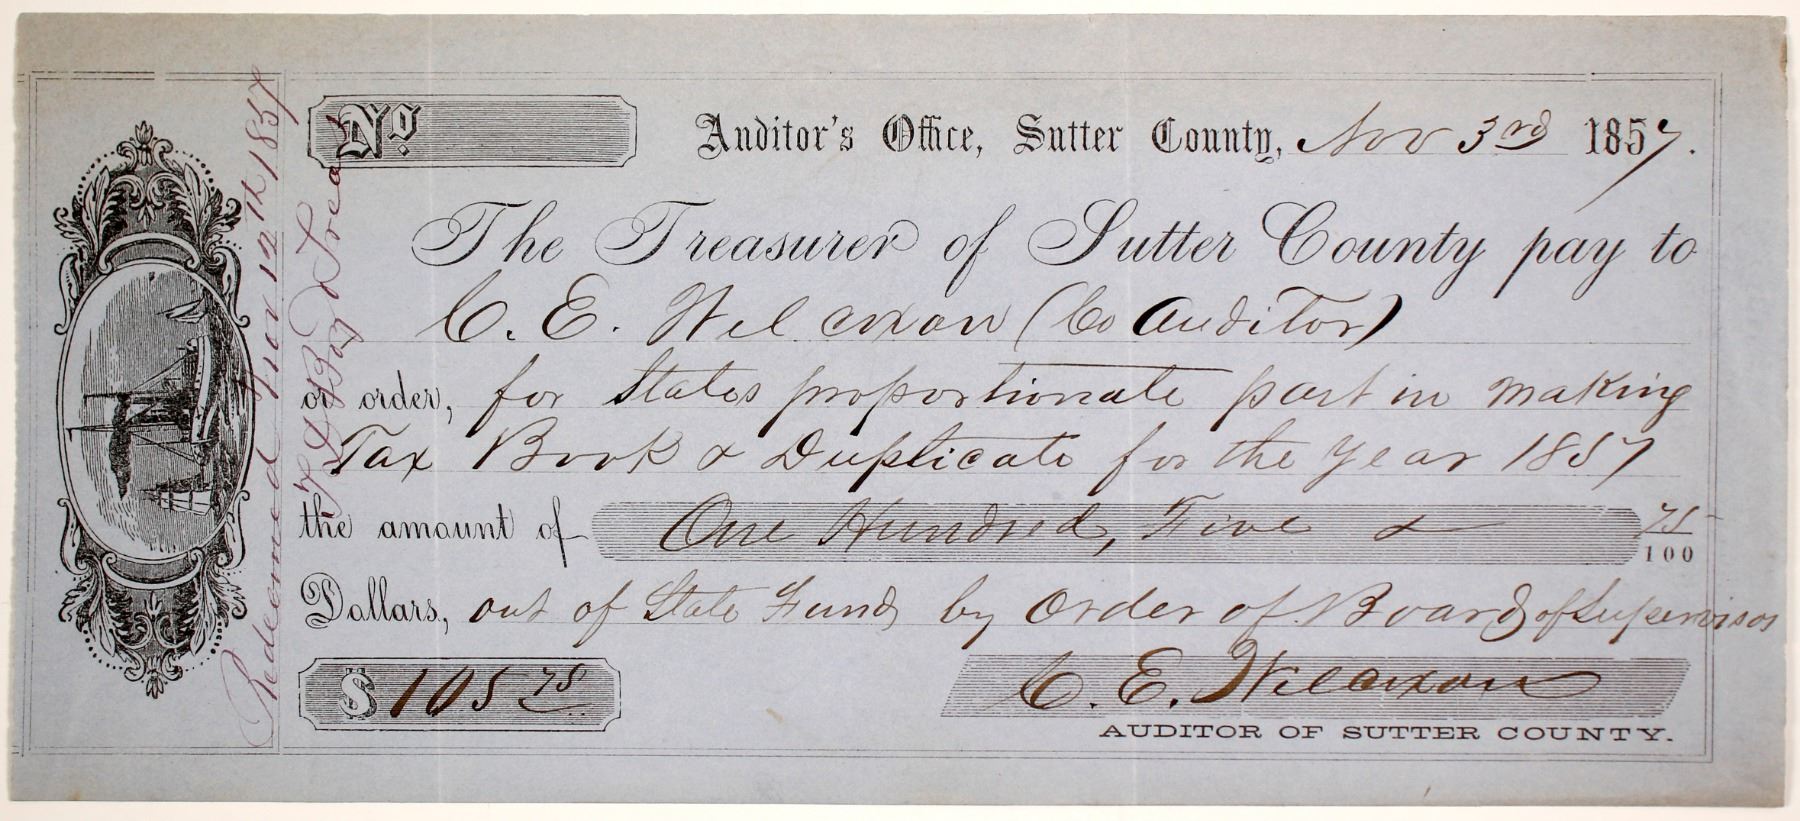 No.
Auditor's Office, Sutter County, Nov 3rd 1857.
The Treasurer of Sutter County pay to
C. E. Wilcoxon (Co Auditor)
or order, for States proportionate part in making
Tax Book & Duplicate for the year 1857
the amount of One Hundred, Five & 75/100
Dollars, out of State Fund by Order of Board of Supervisos
$ 105 75
C. E. Wilcoxon
AUDITOR OF SUTTER COUNTY.
Redeemed Nov 12th 1857
Treas